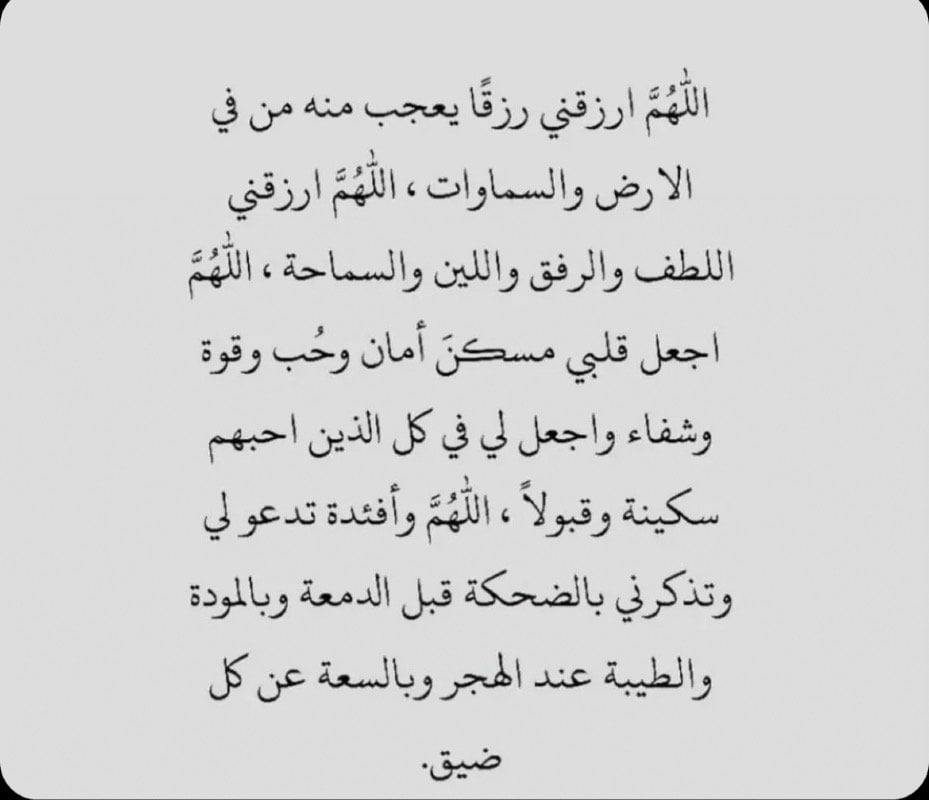 اللّٰهُمَّ ارزقني رزقًا يعجب منه من في
الارض والسماوات ، اللّٰهُمَّ ارزقني
اللطف والرفق واللين والسماحة ، اللّٰهُمَّ
اجعل قلبي مسكنَ أمان وحُب وقوة
وشفاء واجعل لي في كل الذين احبهم
سكينة وقبولاً ، اللّٰهُمَّ وأفئدة تدعو لي
وتذكرني بالضحكة قبل الدمعة وبالمودة
والطيبة عند الهجر وبالسعة عن كل
ضيق.